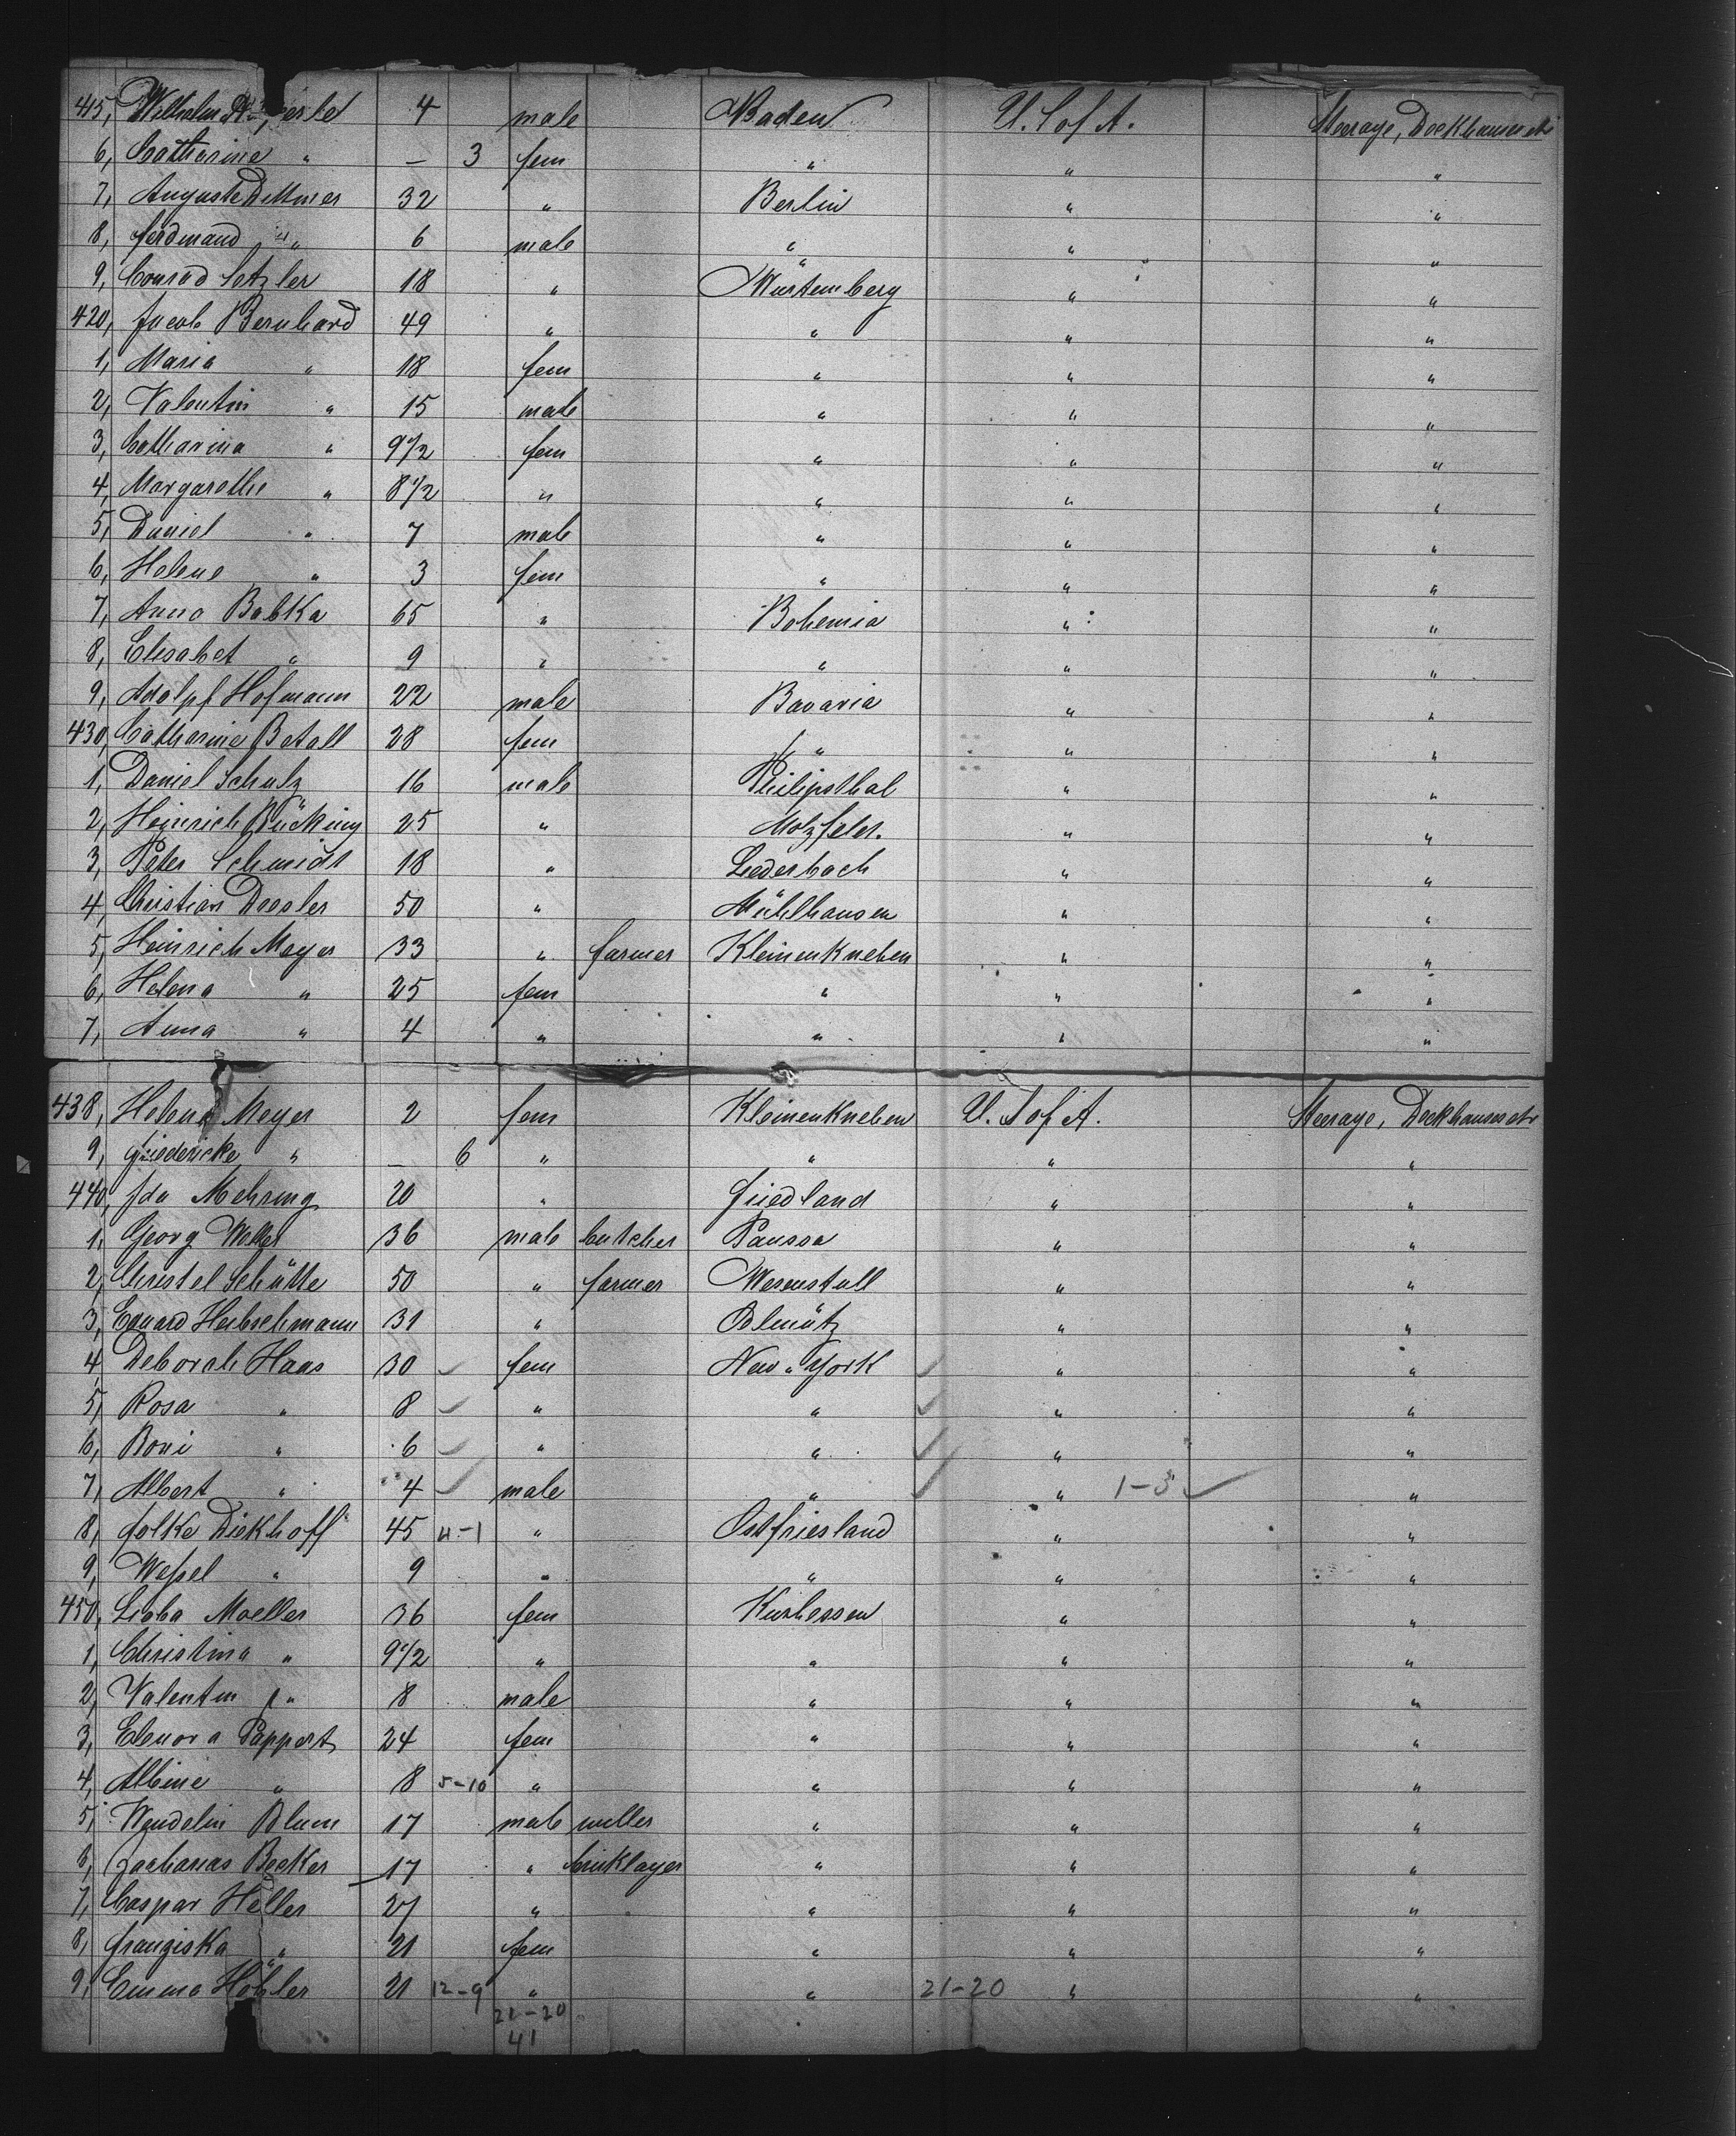 415, Wilhelm 4 male Baden U. S of A. Steerage, Deckhouse etc
6, Catharine " – 3 fem " " "
7, Auguste Dettmer 32 " Berlin " "
8, Ferdinand " 6 male " " "
9, Conrad Setzler 18 " Würtemberg " "
420, Jacob Bernhard 49 " " " "
1, Maria " 18 fem " " "
2, Valentin " 15 male " " "
3, Catharina " 9 1/2 fem " " "
4, Margarethe " 8 1/2 " " " "
5, Daniel " 7 male " " "
6, Helene " 3 fem " " "
7, Anna Babka 65 " Bohemia " "
8, Elisabet " 9 " " " "
9, Adolpf Hofmann 22 male Bavaria " "
430, Catharine Betall 28 fem " " "
1, Daniel Schulz 16 male Philipsthal " "
2, Heinrich Bücking 25 " Motzfeld. " "
3, Peter Schmidt 18 " Lederbach " "
4, Christian Dresler 50 " Mühlhausen " "
5, Heinrich Meyer 33 " farmer Kleinenkneten " "
6, Helena " 25 fem " " "
7, Anna " 4 " " " "
438, Helena Meyer 2 fem Kleinenkneten U. S of A. Steerage, Deckhouse etc
9, Friedericke " – 6 " " " "
440, Ida Mehring 20 " Friedland " "
1, Georg Welker 36 male butcher Paussa " "
2, Christel Schütte 50 " farmer Wesenstall " "
3, Eduard Heibschmann 31 " Olmütz " "
4, Deborah Haas 30 fem New-York " "
5, Rosa " 8 " " " "
6, Boni " 6 " " " "
7, Albert " 4 male " " 1-3 "
8, Folke Dickhoff 45 4-1 " Ostfriesland " "
9, Weßel " 9 " " " "
450, Lioba Moeller 36 fem Kurhessen " "
1, Christina " 9 1/2 " " " "
2, Valentin " 8 male " " "
3, Elenora Pappert 24 fem " " "
4, Albine " 8 5-10 " " " "
5, Wendelin Blum 17 male miller " " "
6, Zacharias Becker 17 " bricklayer " " "
7, Caspar Heller 27 " " " "
8, Franziska " 21 fem " " "
9, Emma Höhler 21 12-9 " " 21-20 " "
21-20
41